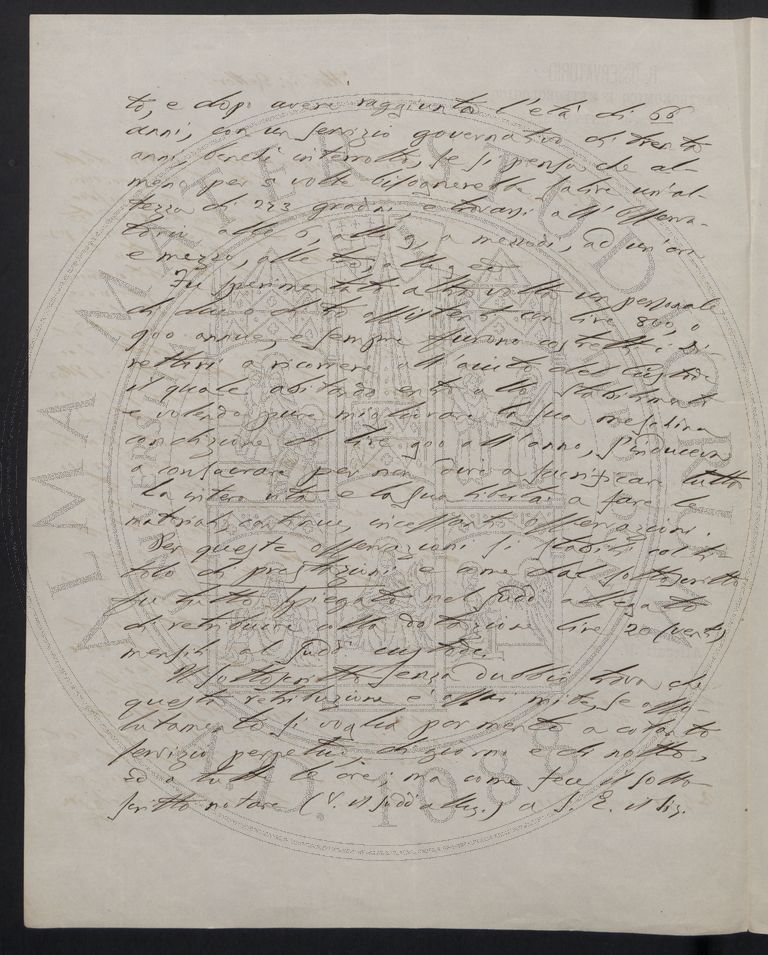 to, e dopo avere raggiunto l'età di 66
anni, con un servizio governativo di trenta
anni, benché interrotto, se si pensa che al-
meno per 9 volte bisognerebbe salire un'al-
tezza di 273 gradini, e trovarsi all'Osserva-
torio alle 6, alle 9, a mezzodì, ad un'ora
e mezzo, alle
Fu sperimentato altre volte un personale
di due o di tre assistenti con lire 800, o
900 annue, e sempre furono costretti i Di-
rettori a ricorrere all'aiuto del Custode
il quale abitando entro allo Stabilimento
e volendo pure migliorare la sua meschina
condizione di lire 900 all'anno, s'induceva
a consacrare per non dire a sacrificare tutta
la intera vita e la sua libertà a fare le
materiali, continue, incessanti osservazioni.
Per queste osservazioni si stabilì col ti-
tolo di prestazioni e come dal sottoscritto
fu tutto spiegato nel sudd.º allegato
di retribuire alla dotazione lire 20 (venti)
mensili al sudd.º custode.
Il sottoscritto senza dubbio trova che
questa retribuzione è assai mite, se asso-
lutamente si voglia por mente a cotanto
servizio perpetuo, di giorno e di notte,
ed a tutte le ore; ma come fece il sotto-
scritto notare (V. il sudd.º alleg.) a S. E. il Sig.
ALMA MATER STUDIORUM
A.D. 1088
R. OSSERVATORIO